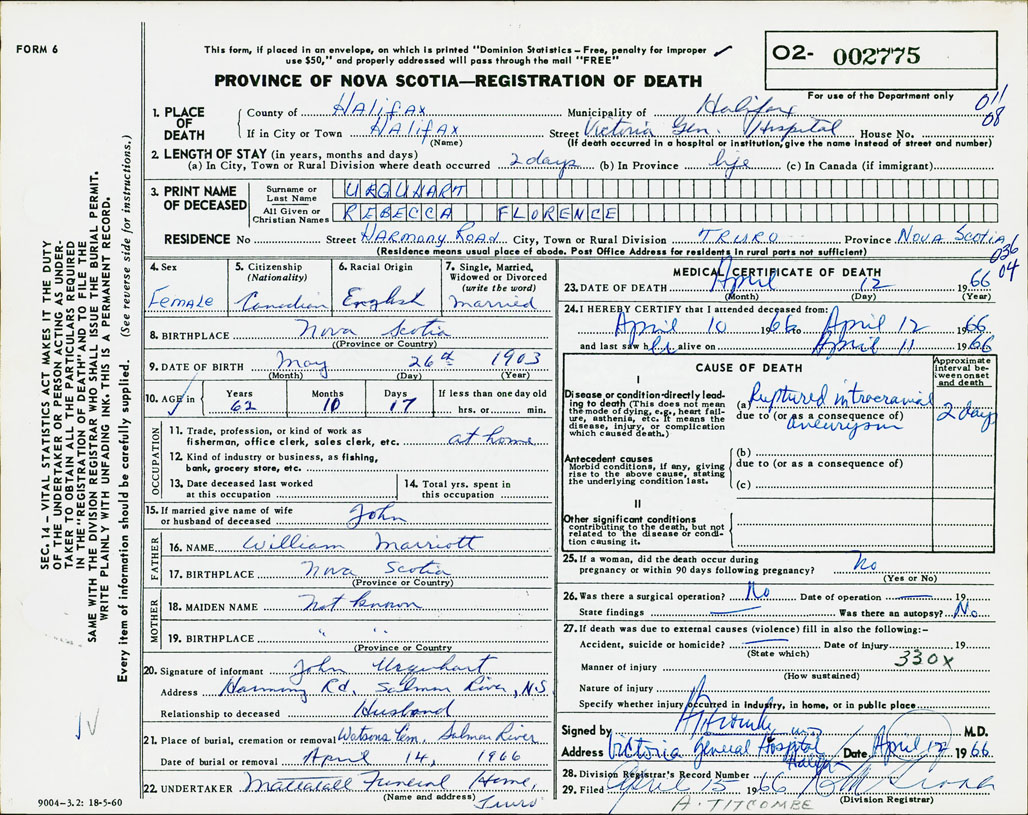 FORM 6
This form, if placed in an envelope, on which is printed "Dominion Statistics – Free, penalty for improper
use $50," and properly addressed will pass through the mail "FREE"
O2- 002775
For use of the Department only
PROVINCE OF NOVA SCOTIA—REGISTRATION OF DEATH
011
08
1. PLACE OF DEATH
County of Halifax Municipality of Halifax
If in City or Town Halifax Street Victoria Gen. Hospital House No.
(Name) (If death occurred in a hospital or institution, give the name instead of street and number)
2. LENGTH OF STAY (in years, months and days)
(a) In City, Town or Rural Division where death occurred 2 days (b) In Province life (c) In Canada (if immigrant)
3. PRINT NAME OF DECEASED
Surname or Last Name URQUHART
All Given or Christian Names REBECCA FLORENCE
RESIDENCE No Street Harmony Road City, Town or Rural Division TRURO Province Nova Scotia
(Residence means usual place of abode. Post Office Address for residents in rural parts not sufficient)
036
04
4. Sex Female
5. Citizenship (Nationality) Canadian
6. Racial Origin English
7. Single, Married, Widowed or Divorced (write the word) married
8. BIRTHPLACE Nova Scotia
((Province or Country)
9. DATE OF BIRTH May 26th 1903
(Month) (Day) (Year)
10. AGE in Years 62 Months 10 Days 17 If less than one day old hrs. or min.
OCCUPATION
11. Trade, profession, or kind of work as
fisherman, office clerk, sales clerk, etc. at home
12. Kind of industry or business, as fishing,
bank, grocery store, etc.
13. Date deceased last worked
at this occupation
14. Total yrs. spent in
this occupation
15. If married give name of wife
or husband of deceased John
FATHER
16. NAME William Marriott
17. BIRTHPLACE Nova Scotia
(Province or Country)
MOTHER
18. MAIDEN NAME Not known
19. BIRTHPLACE " "
(Province or Country)
20. Signature of informant John Urquhart
Address Harmony Rd. Salmon River, N.S.
Relationship to deceased Husband
21. Place of burial, cremation or removal Watsons Cem, Salmon River
Date of burial or removal April 14, 1966
22. UNDERTAKER Mattatall Funeral Home,
(Name and address) Truro
MEDICAL CERTIFICATE OF DEATH
23. DATE OF DEATH April 12 1966
(Month) (Day)
24. I HEREBY CERTIFY that I attended deceased from:
April 10 1966 to April 12 1966
and last saw her alive on April 11 1966
CAUSE OF DEATH
Approximate interval between onset and death
I
Disease or condition directly leading to death (This does not mean the mode of dying, e.g., heart failure, asthenia, etc. It means the disease, injury, or complication which caused death.)
(a) Ruptured intracranial 2 days
due to (or as a consequence of)
aneurysm
Antecedent causes
Morbid conditions, if any, giving rise to the above cause, stating the underlying condition last.
(b)
due to (or as a consequence of)
(c)
II
Other significant conditions
contributing to the death, but not related to the disease or condition causing it.
25. If a woman, did the death occur during
pregnancy or within 90 days following pregnancy? No
(Yes or No)
26. Was there a surgical operation? No Date of operation — 19
State findings — Was there an autopsy? No
27. If death was due to external causes (violence) fill in also the following:–
Accident, suicide or homicide? — Date of injury 19
(State which) 330X
Manner of injury
(How sustained)
Nature of injury
Specify whether injury occurred in Industry, in home, or in public place
Signed by M.D.
Address Victoria General Hospital Halifax Date April 12 1966
28. Division Registrar's Record Number
29. Filed April 15 1966
(Division Registrar)
A. TITCOMBE
9004–3.2: 18-5-60
SEC. 14 – VITAL STATISTICS ACT MAKES IT THE DUTY
OF THE UNDERTAKER OR PERSON ACTING AS UNDERTAKER
TO OBTAIN ALL THE PARTICULARS REQUIRED
IN THE "REGISTRATION OF DEATH" AND TO FILE THE
SAME WITH THE DIVISION REGISTRAR WHO SHALL ISSUE THE BURIAL PERMIT.
WRITE PLAINLY WITH UNFADING INK. THIS IS A PERMANENT RECORD.
Every item of information should be carefully supplied. (See reverse side for instructions.)